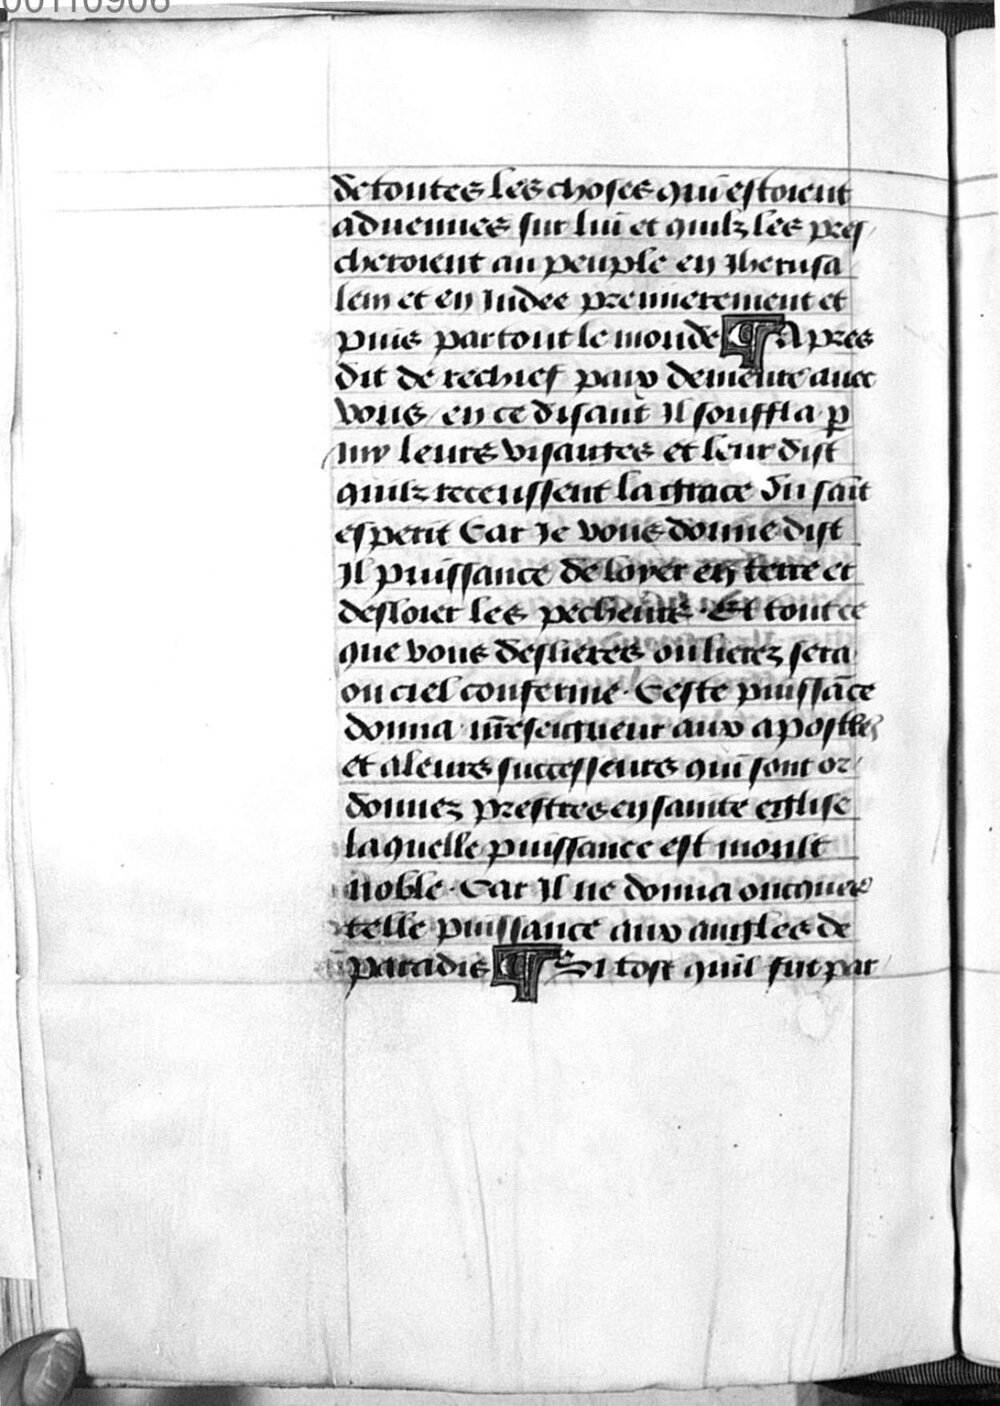 00110908
de toutes les choses qui estoient
aduenues sur lui et quilz les pres/
cheroient au peuple en Jherusa
lem et en Judee premierement et
puis par tout le monde ¶ Apres
dit de rechief paix demeure auec
vous / en ce disant Il souffla p̲
my leurs visaiges et leur dist
quilz receussent la grace du sait̄
esperit Car Je vous donne dist
Il puissance de loyer en terre et
desloier les pecheurs · Et tout ce
que vous deslieres ou lierez sera
ou ciel conferme · Ceste puissāce
donna nr̄eseigneur aux apostles
et a leurs successeurs qui sont or/
donnez prestres en sainte eglise
laquelle puissance est moult
noble · Car Il ne donna oncques
telle puissance aux angles de
paradis ¶ Si tost quil fut par